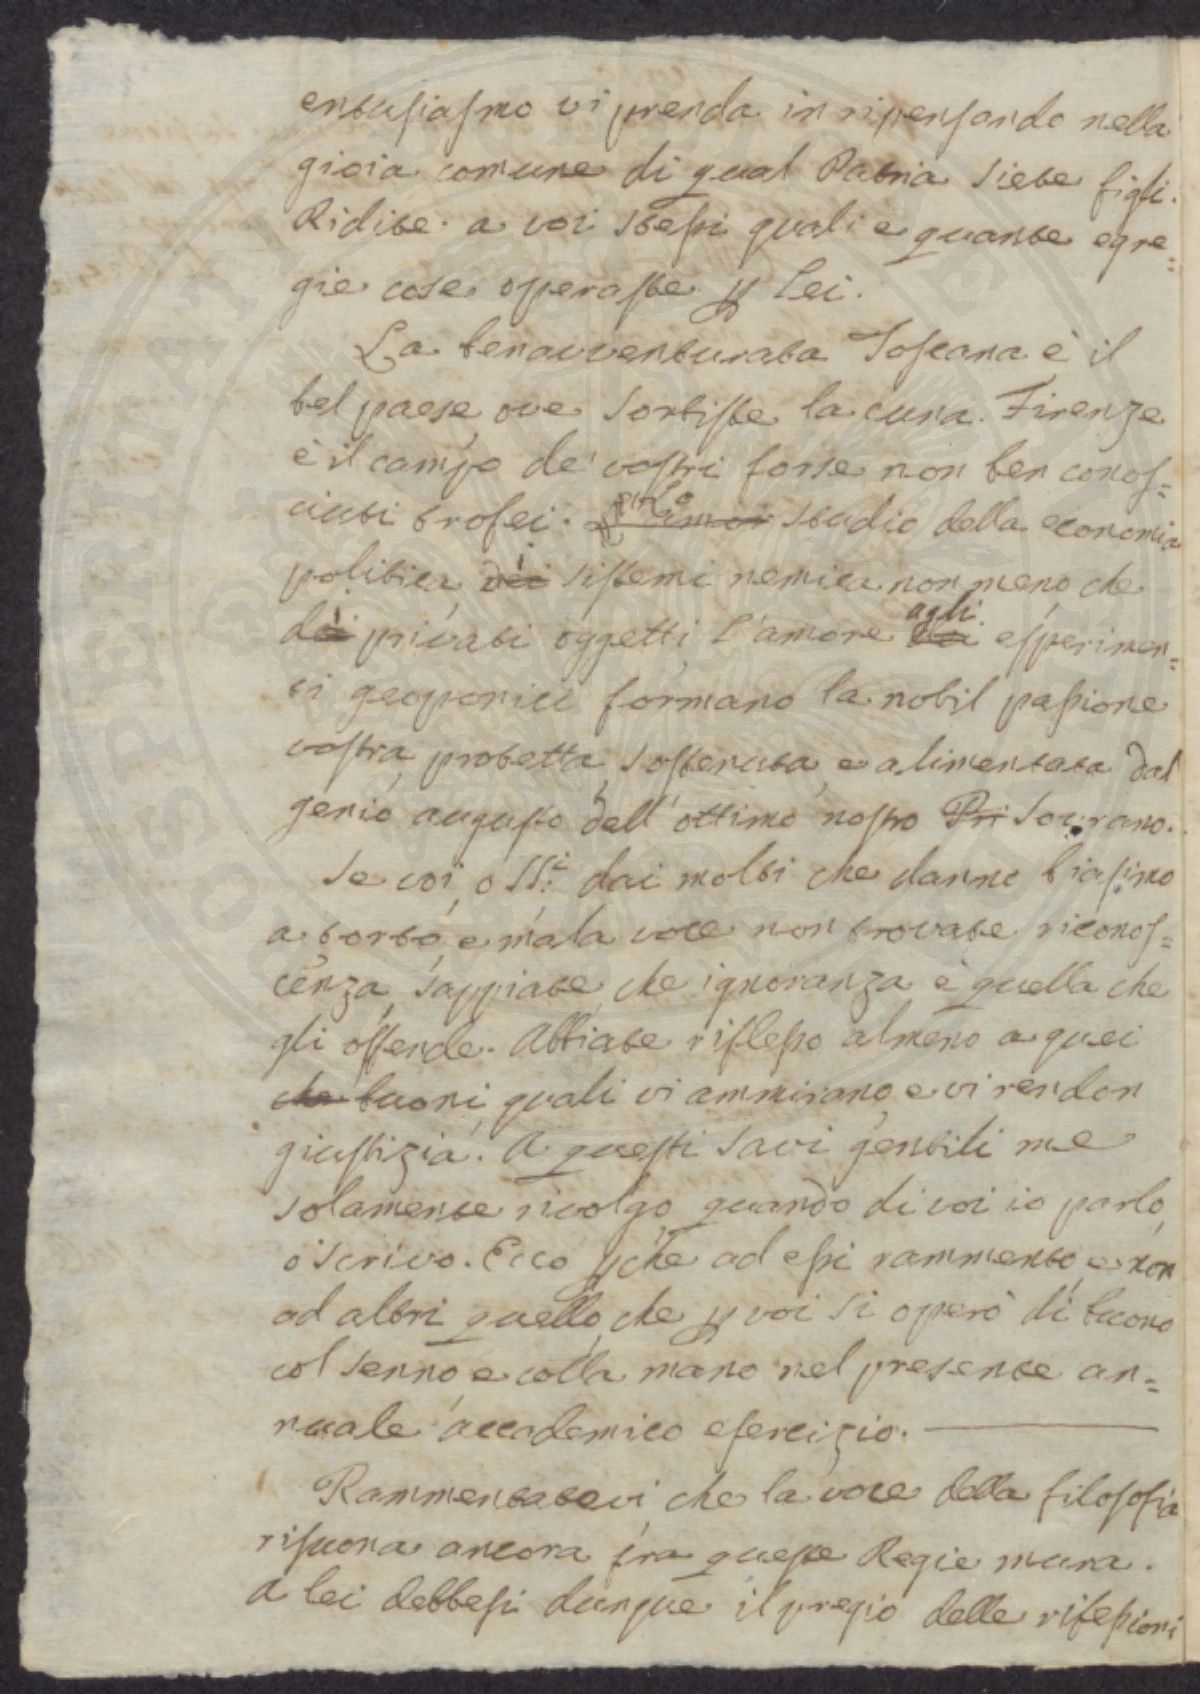 entusiasmo vi prenda in ripensando nella
gioia comune di qual Patria siete figli.
Ridite a voi stessi quali e quante egre=
gie cose operaste p lei.
La benavventurata Toscana è il
bel paese ove sortiste la cuna. Firenze
è il campo de' vostri forse non ben conos=
ciuti trofei. Lo studio della economia
politica di sistemi nemica non meno che
di privati oggetti, l'amore agli esperimen=
ti geoponici formano la nobil passione
vostra protetta, sostenuta, e alimentata dal
genio augusto dell'ottimo nostro Pri Sovrano.
Se voi, o SS.i dai molti che danno biasimo
a torto, e mala voce non trovate riconos=
cenza, sappiate che ignoranza è quella che
gli offende. Abbiate riflesso almeno a quei
che buoni, quali vi ammirano, e vi rendon
giustizia. A questi savi gentili me
solamente rivolgo, quando di voi io parlo,
o scrivo. Ecco pche ad essi rammento, e non
ad altri quello, che p voi si operò di buono
col senno, e colla mano nel presente an=
nuale accademico esercizio.
Rammentatevi, che la voce della filosofia
risuona ancora fra queste Regie mura.
A lei debbesi dunque il pregio delle riflessioni